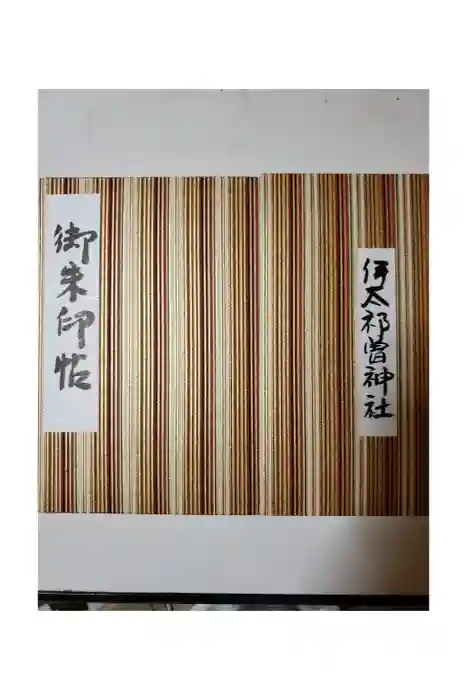 御朱印帖
伊太祁曽神社